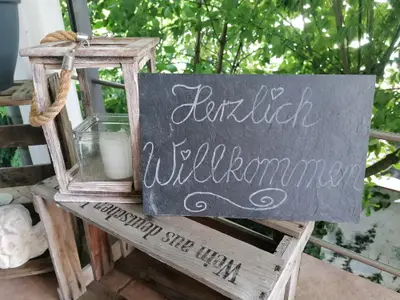 Herzlich
Willkommen
Wein aus deutschen